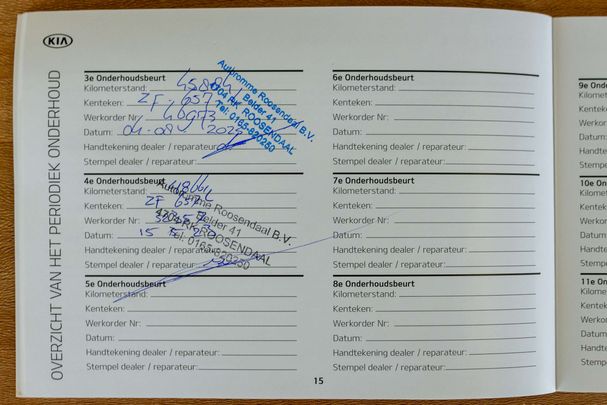 KIA
OVERZICHT VAN HET PERIODIEK ONDERHOUD
3e Onderhoudsbeurt
Kilometerstand:
Kenteken: ZF-657
Werkorder Nr: 40973
Datum: 04-08
Handtekening dealer / reparateur:
Stempel dealer / reparateur:
Autoromme Roosendaal B.V.
Belder 41
4704 RK ROOSENDAAL
Tel: 0165-820250
4e Onderhoudsbeurt
Kilometerstand:
Kenteken: ZF 657
Werkorder Nr:
Datum: 15 5
Handtekening dealer / reparateur:
Stempel dealer / reparateur:
Autoromme Roosendaal B.V.
Belder 41
4704 RK ROOSENDAAL
Tel: 0165-820250
5e Onderhoudsbeurt
Kilometerstand:
Kenteken:
Werkorder Nr:
Datum:
Handtekening dealer / reparateur:
Stempel dealer / reparateur:
6e Onderhoudsbeurt
Kilometerstand:
Kenteken:
Werkorder Nr:
Datum:
Handtekening dealer / reparateur:
Stempel dealer / reparateur:
7e Onderhoudsbeurt
Kilometerstand:
Kenteken:
Werkorder Nr:
Datum:
Handtekening dealer / reparateur:
Stempel dealer / reparateur:
8e Onderhoudsbeurt
Kilometerstand:
Kenteken:
Werkorder Nr:
Datum:
Handtekening dealer / reparateur:
Stempel dealer / reparateur:
15
9e
10e
11e